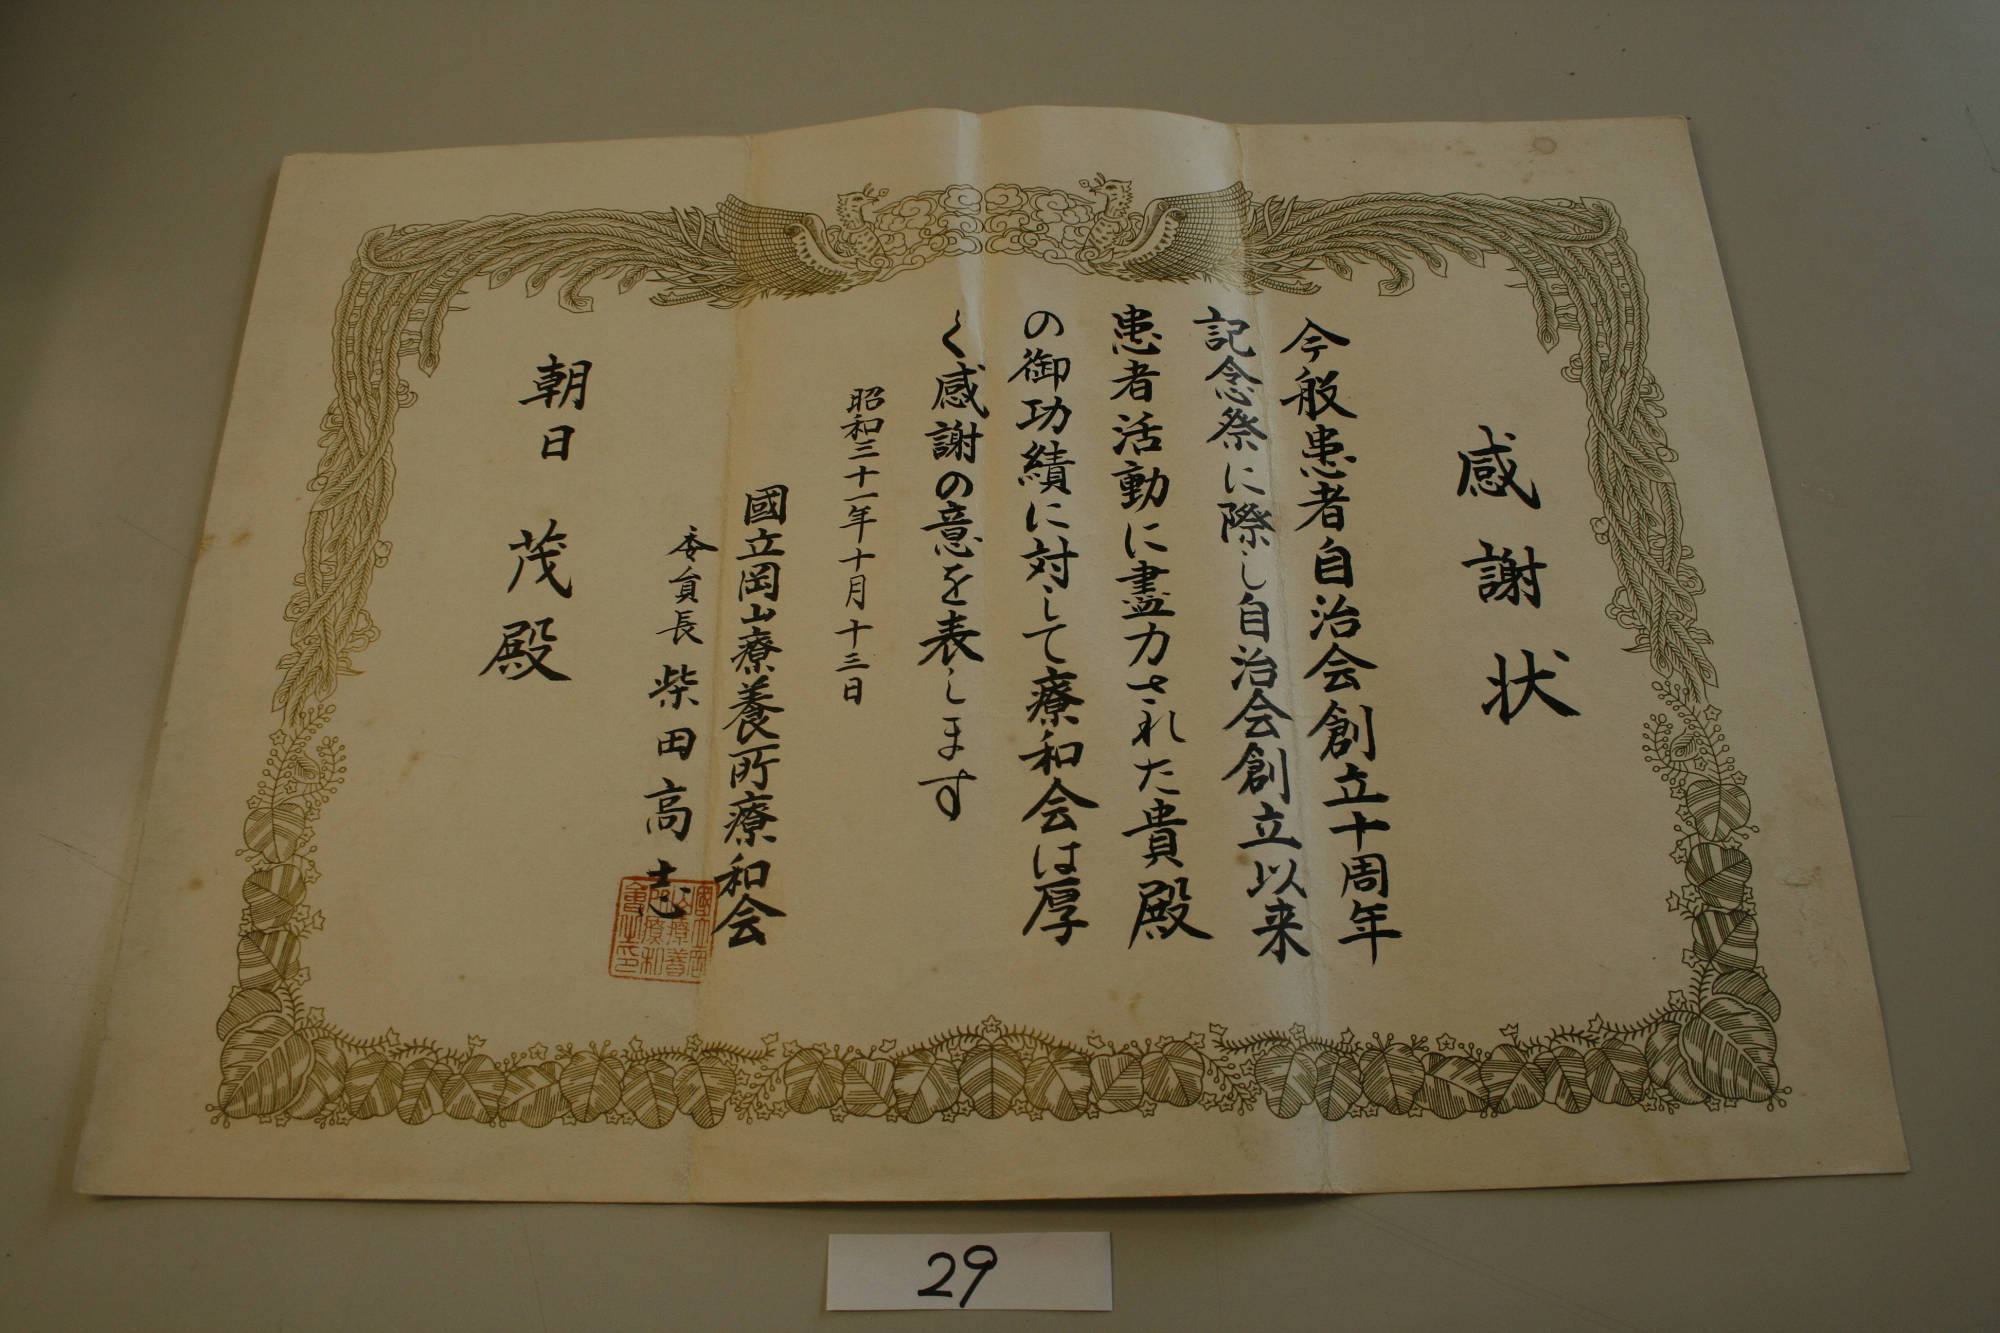 感謝状
今般患者自治会創立十周年
記念祭に際し自治会創立以来
患者活動に盡力された貴殿
の御功績に対して療和会は厚
く感謝の意を表します
昭和三十一年十月十三日
國立岡山療養所療和会
委員長 柴田高志
國立岡
山療養
所療和
會之印
朝日 茂殿
29